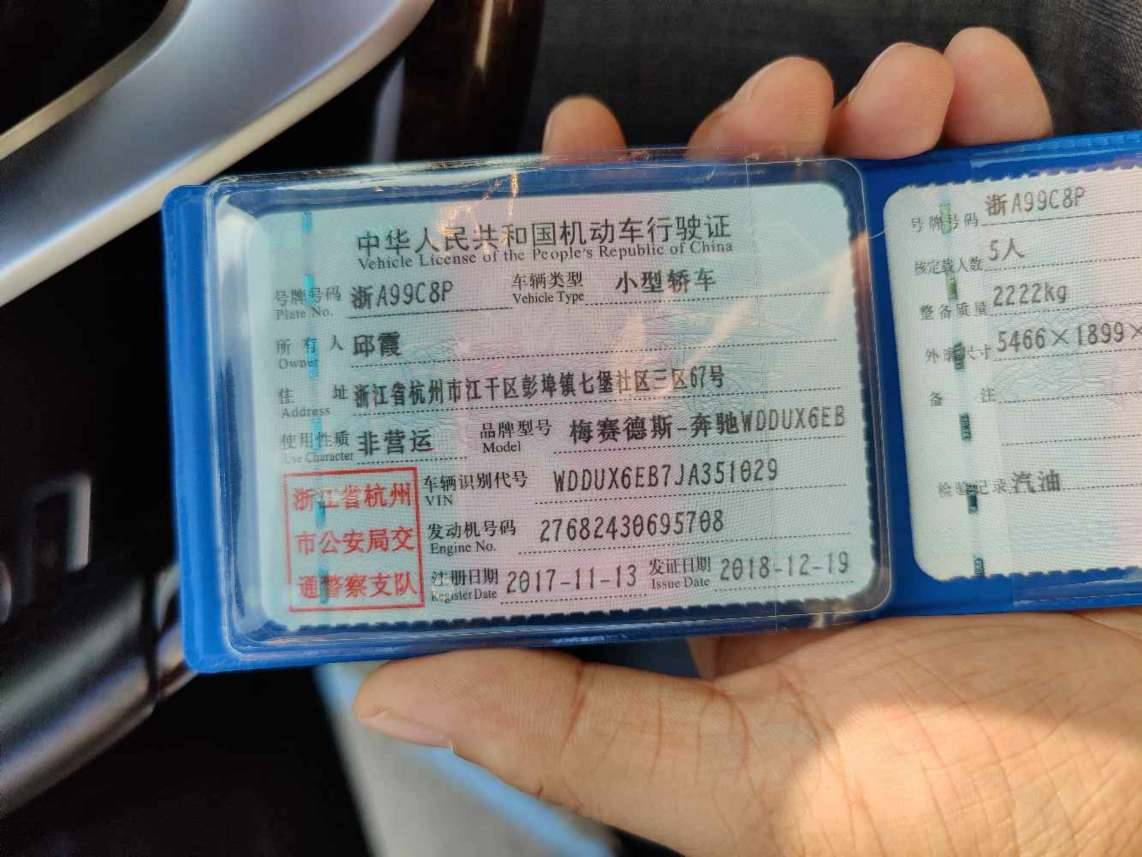 中华人民共和国机动车行驶证
Vehicle License of the People's Republic of China
号牌号码 浙A99C8P 车辆类型 小型轿车
Plate No. Vehicle Type
所有人 邱霞
Owner
住址 浙江省杭州市江干区彭埠镇七堡社区三区67号
Address
使用性质 非营运 品牌型号 梅赛德斯-奔驰WDDUX6EB
Use Character Model
浙江省杭州
市公安局交
通警察支队
车辆识别代号 WDDUX6EB7JA351029
VIN
发动机号码 27682430695708
Engine No.
注册日期 2017-11-13 发证日期 2018-12-19
Register Date Issue Date
号牌号码 浙A99C8P
核定载人数 5人
整备质量 2222kg
外廓尺寸 5466×1899×
备注
检验记录 汽油